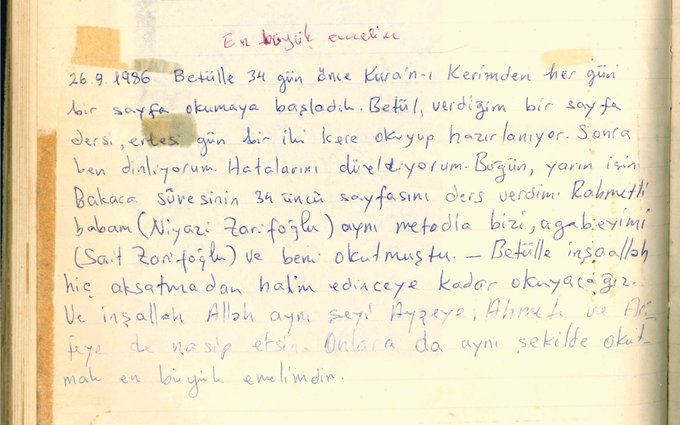 En büyük emelim
26.9.1986 Betülle 34 gün önce Kura'n-ı Kerimden her gün
bir sayfa okumaya başladık. Betül, verdiğim bir sayfa
dersi, ertesi gün bir iki kere okuyup hazırlanıyor. Sonra
ben dinliyorum. Hatalarını düzeltiyorum. Bugün, yarın için
Bakara sûresinin 34 üncü sayfasını ders verdim. Rahmetli
babam (Niyazi Zarifoğlu) aynı metodla bizi, agabeyimi
(Sait Zarifoğlu) ve beni okutmuştu. – Betülle inşaallah
hiç aksatmadan hatim edinceye kadar okuyacağız.
Ve inşallah Allah aynı şeyi Ayşeye, Ahmete ve Ari-
feye de nasip etsin. Onlara da aynı şekilde okut-
mak en büyük emelimdir.